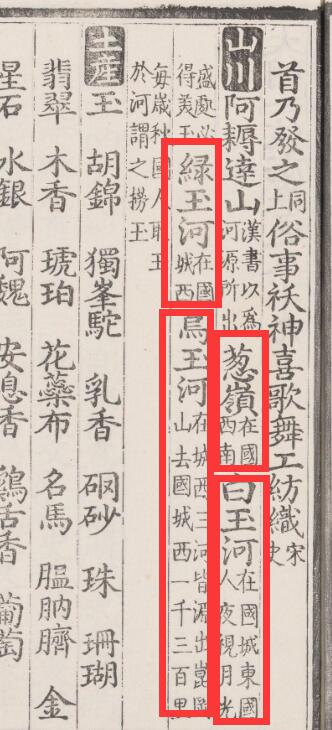 首乃發之同上俗事祆神喜歌舞工紡織宋史
山川 阿耨達山漢書以為河源所出葱嶺在國西南白玉河在國城東國人夜視月光
盛處必得美玉綠玉河在國城西烏玉河在城西三河皆源出崑岡山去國城西一千三百里
每歲秋國人取玉於河謂之撈玉
土產 玉 胡錦 獨峯駝 乳香 硇砂 珠 珊瑚
翡翠 木香 琥珀 花蘂布 名馬 膃肭臍 金
星石 水銀 阿魏 安息香 鷄舌香 葡萄